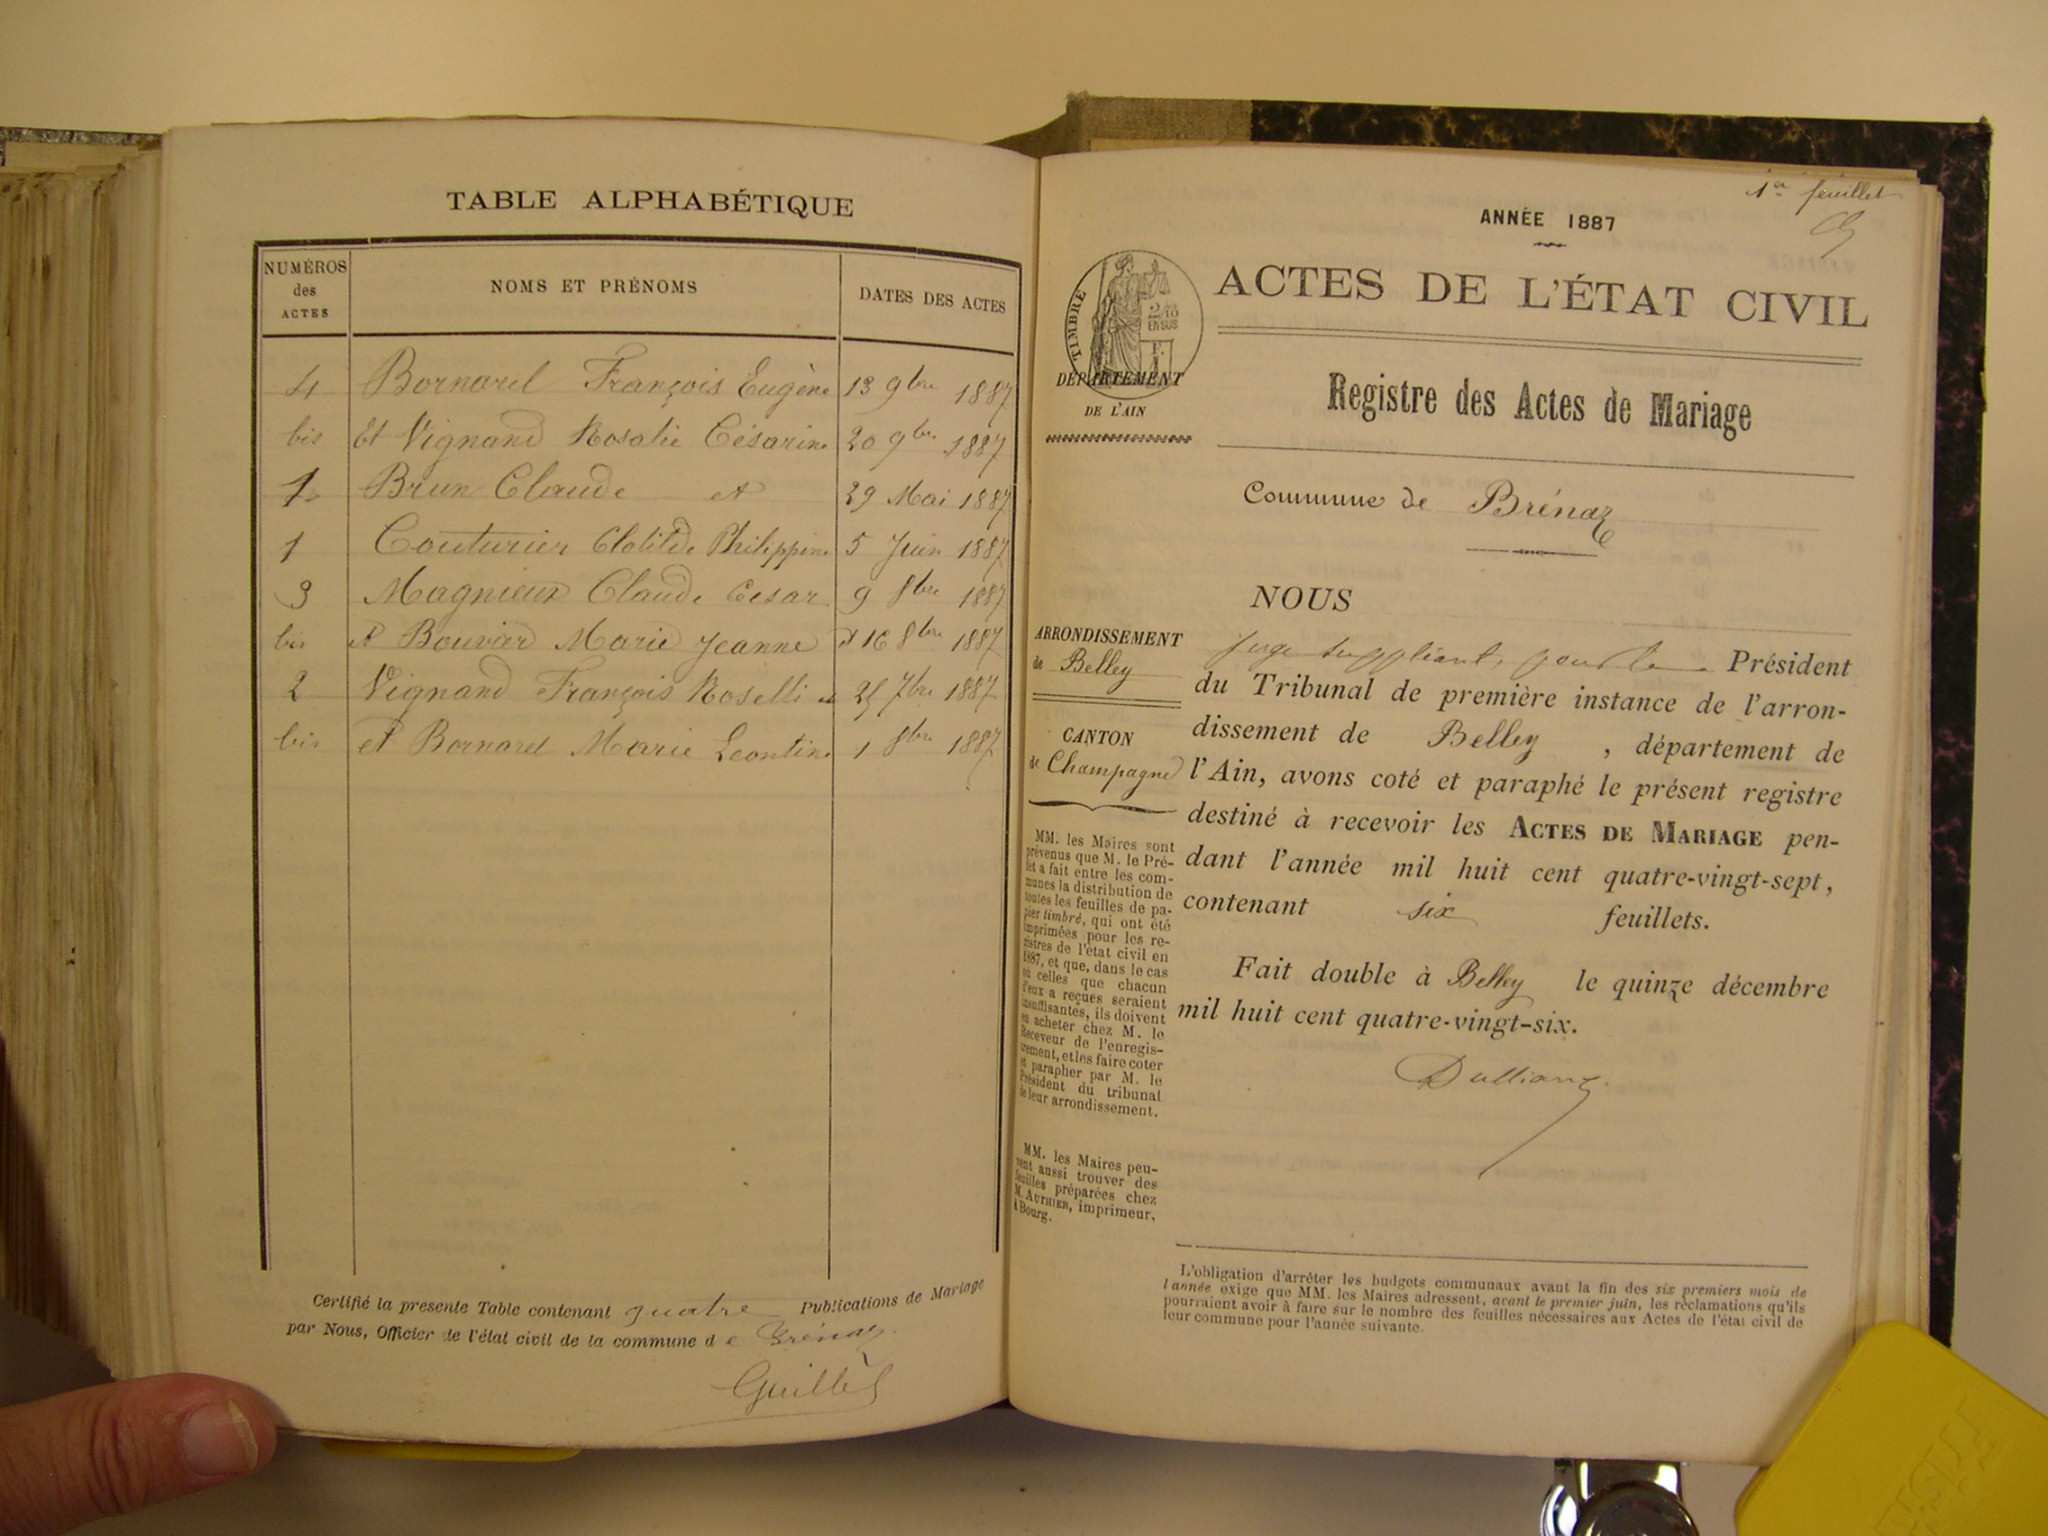 TABLE ALPHABÉTIQUE
NUMÉROS des ACTES NOMS ET PRÉNOMS DATES DES ACTES
4 Bornarel François Eugène 13 9bre 1887
bis Et Vignand Rosalie Césarine 20 9bre 1887
1 Brun Claude et 29 Mai 1887
1 Couturier Clotilde Philippine 5 Juin 1887
3 Magnieux Claude Cesar 9 8bre 1887
bis et Bouvier Marie Jeanne et 16 8bre 1887
2 Vignand François Roselli et 25 7bre 1887
bis et Bornarel Marie Leontine 1 8bre 1887
Certifié la presente Table contenant quatre Publications de Mariage
par Nous, Officier de l'état civil de la commune de Brénaz
Guillet
1er feuillet
ANNÉE 1887
TIMBRE
2/10
EN SUS
ACTES DE L'ÉTAT CIVIL
DÉPARTEMENT
DE L'AIN
Registre des Actes de Mariage
Commune de Brénaz
NOUS
ARRONDISSEMENT
de Belley
CANTON
de Champagne
juge suppléant, pour le Président
du Tribunal de première instance de l'arron-
dissement de Belley, département de
l'Ain, avons coté et paraphé le présent registre
destiné à recevoir les ACTES DE MARIAGE pen-
dant l'année mil huit cent quatre-vingt-sept,
contenant six feuillets.
Fait double à Belley le quinze décembre
mil huit cent quatre-vingt-six.
MM. les Maires sont
prévenus que M. le Pré-
fet a fait entre les com-
munes la distribution de
toutes les feuilles de pa-
pier timbré, qui ont été
imprimées pour les re-
gistres de l'état civil en
1887, et que, dans le cas
où celles que chacun
d'eux a reçues seraient
insuffisantes, ils doivent
en acheter chez M. le
Receveur de l'enregis-
trement, et les faire coter
et parapher par M. le
Président du tribunal
de leur arrondissement.
MM. les Maires peu-
vent aussi trouver des
feuilles préparées chez
M. AUTHIER, imprimeur,
à Bourg.
L'obligation d'arrêter les budgets communaux avant la fin des six premiers mois de
l'année exige que MM. les Maires adressent, avant le premier juin, les réclamations qu'ils
pourraient avoir à faire sur le nombre des feuilles nécessaires aux Actes de l'état civil de
leur commune pour l'année suivante.